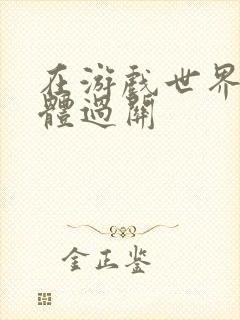 在游戲世界
體過關
金正鉴